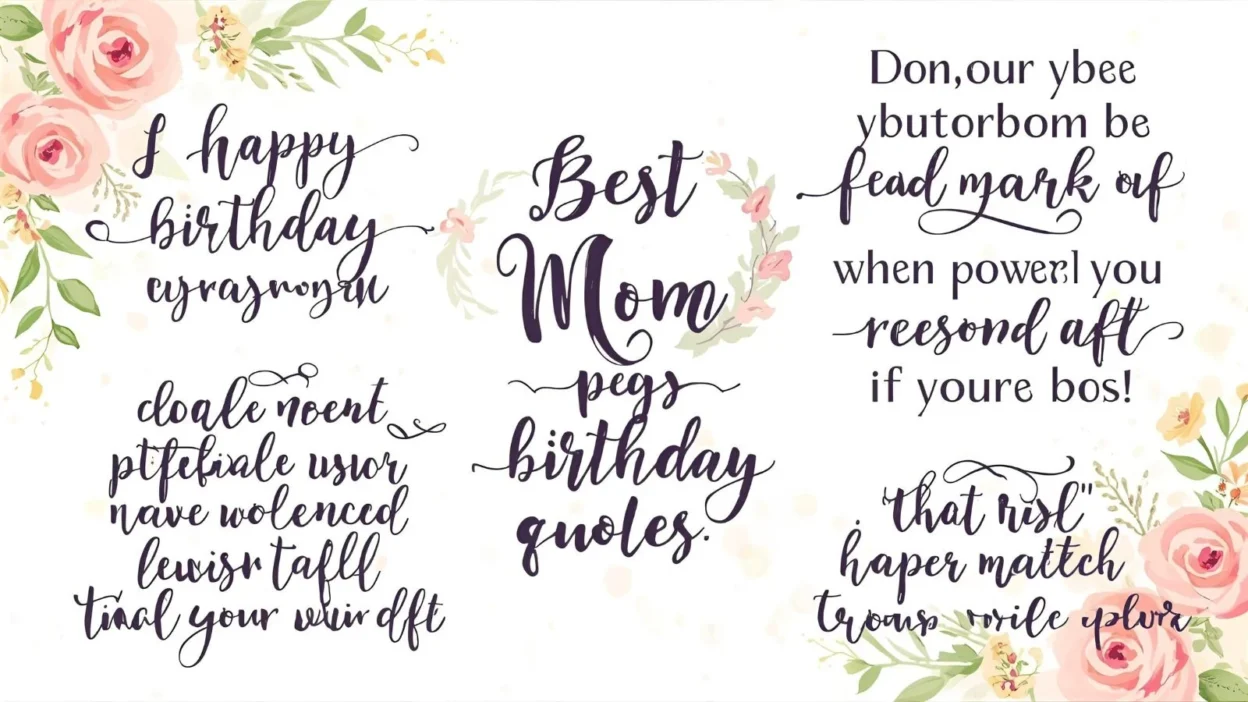 I happy
birthday
cyrasnoyru
cloale noent
ptfefiale uswor
nave wolenced
lewisr tafll
tinal your wuir dft
Best
Mom
pegs
birthday
quoles.
Don,our ybee
ybutorbom be
fead mark of
when powerl you
reesond aft
if youre bos!
that risl"
haper mattch
troms wile plura